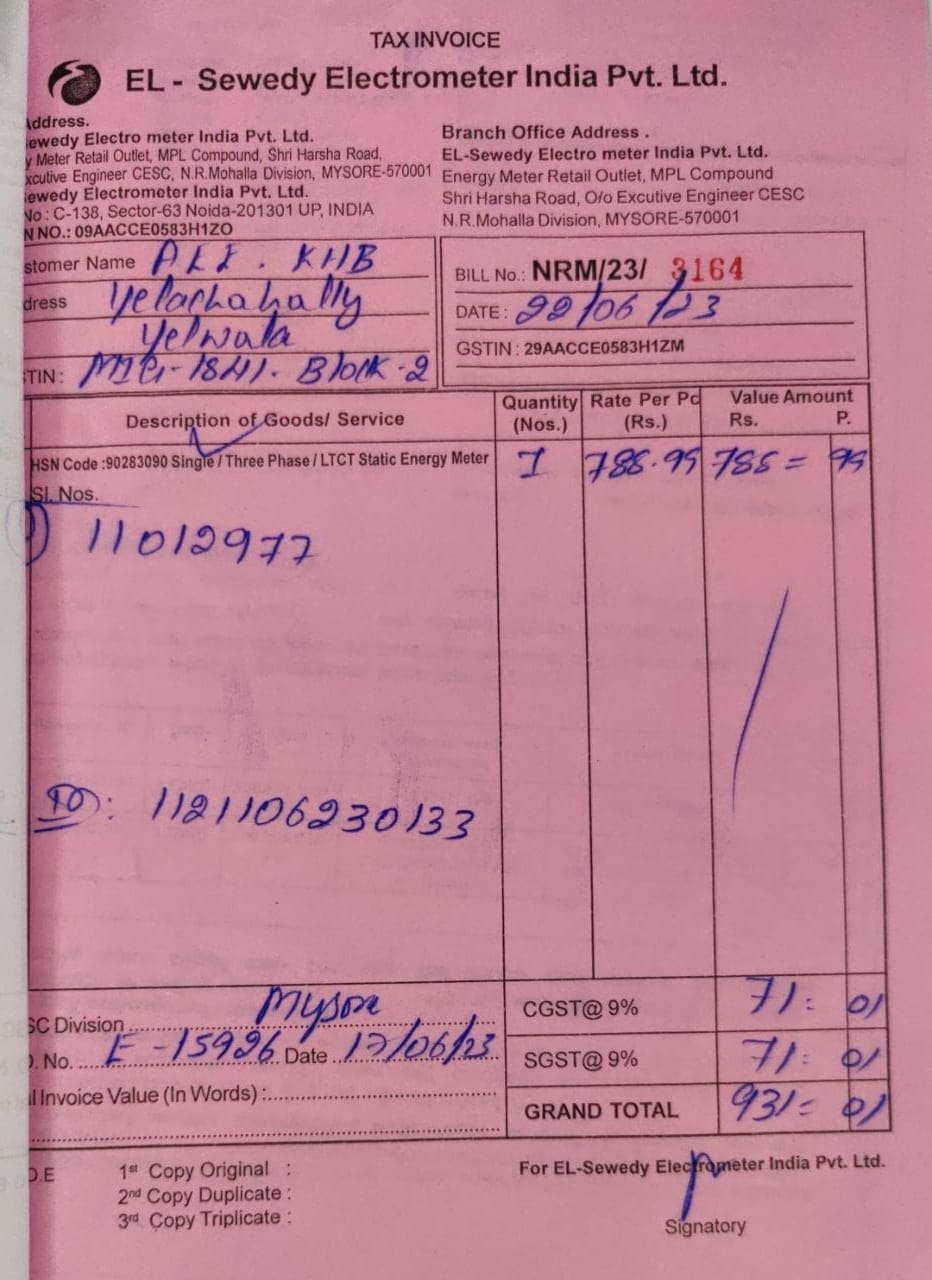 TAX INVOICE
EL - Sewedy Electrometer India Pvt. Ltd.
Address.
ewedy Electro meter India Pvt. Ltd.
y Meter Retail Outlet, MPL Compound, Shri Harsha Road,
xcutive Engineer CESC, N.R.Mohalla Division, MYSORE-570001
ewedy Electrometer India Pvt. Ltd.
No : C-138, Sector-63 Noida-201301 UP, INDIA
N NO.: 09AACCE0583H1ZO
Branch Office Address .
EL-Sewedy Electro meter India Pvt. Ltd.
Energy Meter Retail Outlet, MPL Compound
Shri Harsha Road, O/o Excutive Engineer CESC
N.R.Mohalla Division, MYSORE-570001
stomer Name KHB
dress Yelachahally
Yelwala
TIN : MIG-1841. Block-2
BILL No.: NRM/23/ 3164
DATE : 22/06/23
GSTIN : 29AACCE0583H1ZM
Description of Goods/ Service Quantity (Nos.) Rate Per Pc (Rs.) Value Amount Rs. P.
HSN Code :90283090 Single / Three Phase / LTCT Static Energy Meter 1 788.99 788 = 99
Sl. Nos.
1) 11012977
ID: 1121106230133
SC Division Mysore
O. No. E-15926 Date 17/06/23
l Invoice Value (In Words) :
CGST@ 9% 71: 01
SGST@ 9% 71: 01
GRAND TOTAL 931= 01
O.E 1st Copy Original :
2nd Copy Duplicate :
3rd Copy Triplicate :
For EL-Sewedy Electrometer India Pvt. Ltd.
Signatory